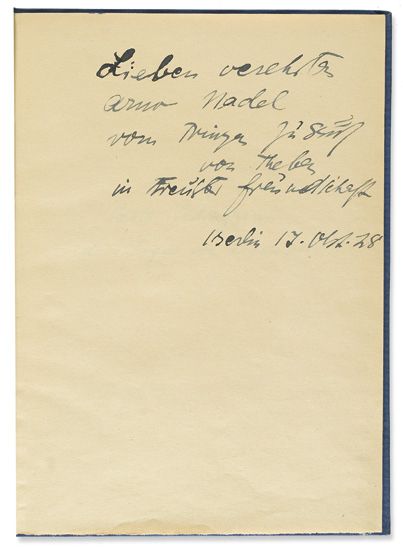 Lieben verehrten
Arno Nadel
vom Prinzen Jussuf
von Theben
in treuster Freundschaft
Berlin 17. Okt. 28